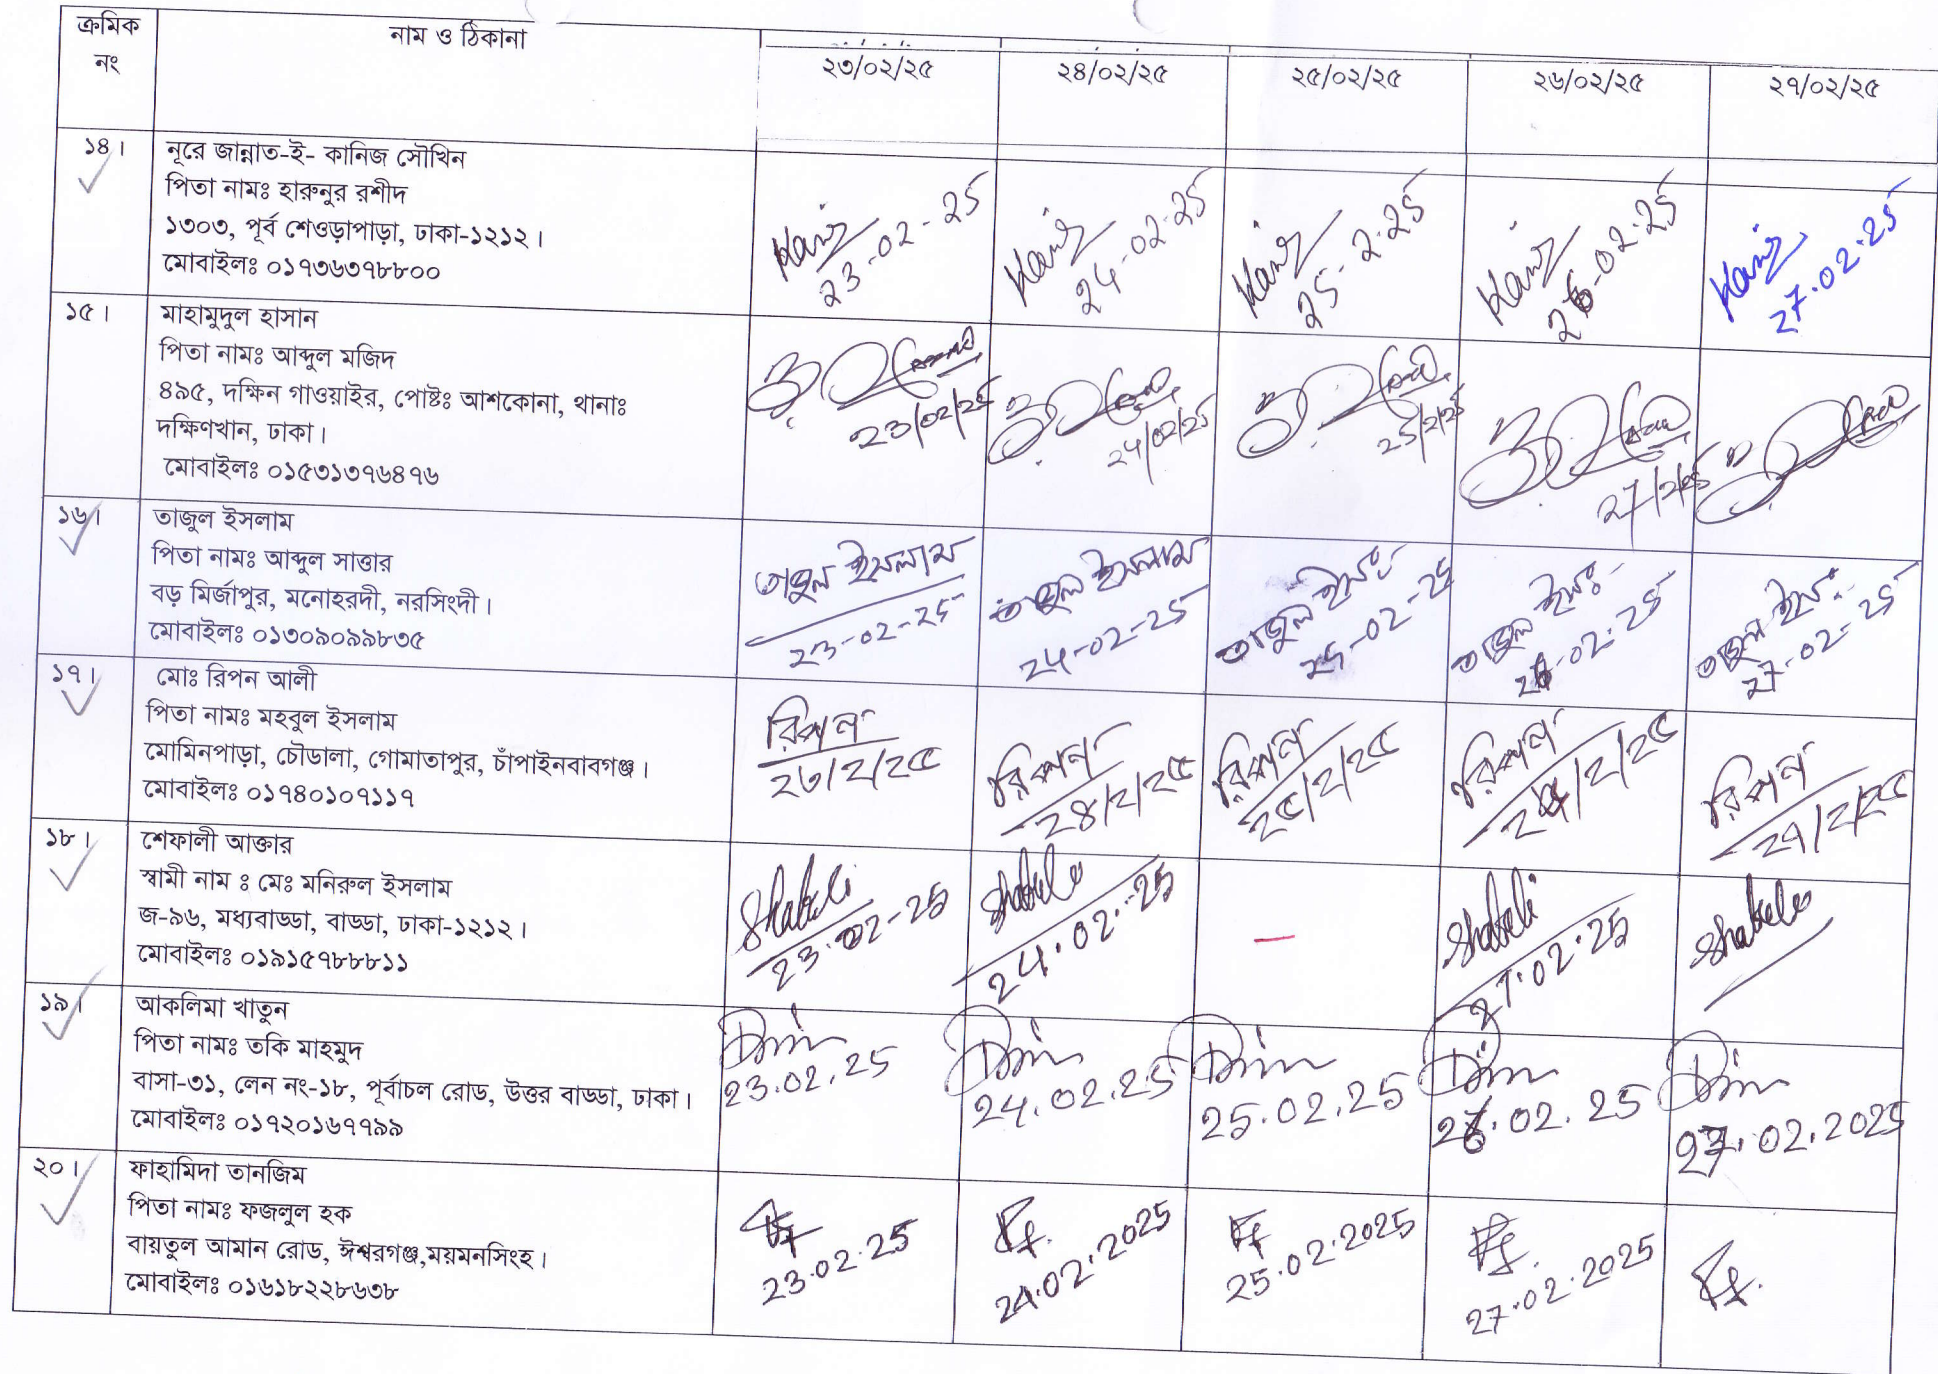 ক্রমিক নং
নাম ও ঠিকানা
২৩/০২/২৫
২৪/০২/২৫
২৫/০২/২৫
২৬/০২/২৫
২৭/০২/২৫
১৪।
নূরে জান্নাত-ই- কানিজ সৌখিন
পিতা নামঃ হারুনুর রশীদ
১৩০৩, পূর্ব শেওড়াপাড়া, ঢাকা-১২১২।
মোবাইলঃ ০১৭৩৬৩৭৮৮০০
Kaniz 23-02-25
Kaniz 24-02-25
Kaniz 25-2-25
Kaniz 26-02-25
Kaniz 27.02.25
১৫।
মাহামুদুল হাসান
পিতা নামঃ আব্দুল মজিদ
৪৯৫, দক্ষিন গাওয়াইর, পোষ্টঃ আশকোনা, থানাঃ
দক্ষিণখান, ঢাকা।
মোবাইলঃ ০১৫৩১৩৭৬৪৭৬
23/02/25
24/02/25
25/2/25
27/2/25
১৬।
তাজুল ইসলাম
পিতা নামঃ আব্দুল সাত্তার
বড় মির্জাপুর, মনোহরদী, নরসিংদী।
মোবাইলঃ ০১৩০৯০৯৯৮৩৫
তাজুল ইসলাম 23-02-25
তাজুল ইসলাম 24-02-25
তাজুল ইসঃ 25-02-25
তাজুল ইসঃ 26-02-25
তাজুল ইসঃ 27-02-25
১৭।
মোঃ রিপন আলী
পিতা নামঃ মহবুল ইসলাম
মোমিনপাড়া, চৌডালা, গোমাতাপুর, চাঁপাইনবাবগঞ্জ।
মোবাইলঃ ০১৭৪০১০৭১১৭
রিপন ২৩/২/২৫
রিপন ২৪/২/২৫
রিপন ২৫/২/২৫
রিপন /২/২৫
রিপন ২৭/২/২৫
১৮।
শেফালী আক্তার
স্বামী নাম ঃ মেঃ মনিরুল ইসলাম
জ-৯৬, মধ্যবাড্ডা, বাড্ডা, ঢাকা-১২১২।
মোবাইলঃ ০১৯১৫৭৮৮৮১১
23.02-25
24.02.25
27.02.25
১৯।
আকলিমা খাতুন
পিতা নামঃ তকি মাহমুদ
বাসা-৩১, লেন নং-১৮, পূর্বাচল রোড, উত্তর বাড্ডা, ঢাকা।
মোবাইলঃ ০১৭২০১৬৭৭৯৯
23.02.25
24.02.25
25.02.25
26.02.25
27.02.2025
২০।
ফাহামিদা তানজিম
পিতা নামঃ ফজলুল হক
বায়তুল আমান রোড, ঈশ্বরগঞ্জ,ময়মনসিংহ।
মোবাইলঃ ০১৬১৮২২৮৬৩৮
23.02.25
24.02.2025
25.02.2025
27.02.2025